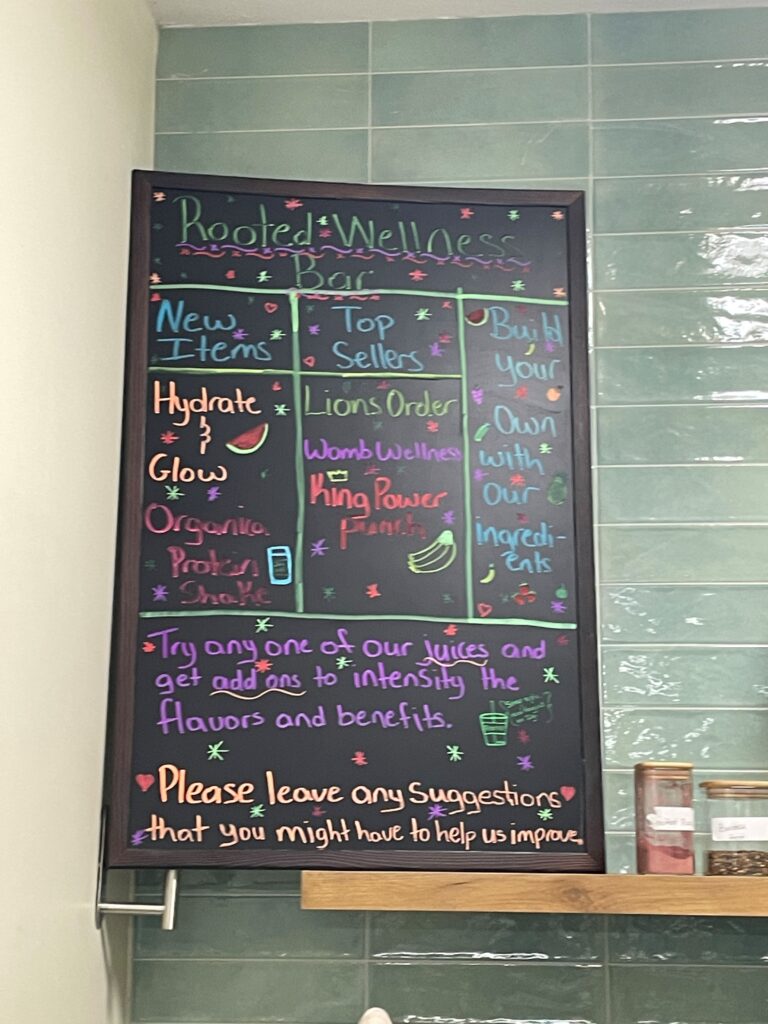 Rooted Wellness
Bar
New
Items
Hydrate
&
Glow
Organika
Protein
Shake
Top
Sellers
Lions Order
Womb Wellness
King Power
punch
Build
Your
Own
with
Our
ingredi-
ents
Try any one of our juices and
get add ons to intensity the
flavors and benefits.
Please leave any Suggestions
that you might have to help us improve.